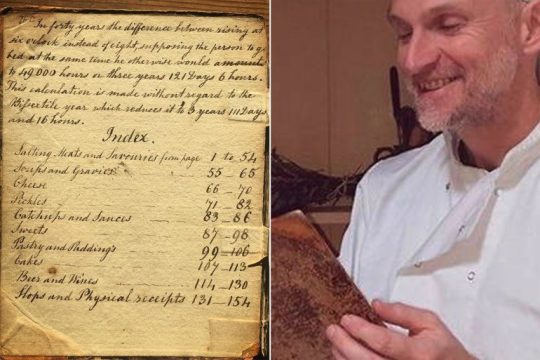 In forty years the difference between rising at
six o'clock instead of eight, supposing the person to go
bed at the same time he otherwise would amounts
to 49000 hours or three years 121 Days 6 hours.
This calculation is made without regard to the
Bisextile year which reduces it to 3 years 111 Days
and 16 hours.
Index.
Salting Meats and Savouries from page 1 to 54
Soups and Gravies 55 - 65
Cheese 66 - 70
Pickles 71 - 82
Catchups and Sauces 83 - 86
Sweets 87 - 98
Pastry and Puddings 99 - 106
Cakes 107 - 113
Beer and Wines 114 - 130
Slops and Physical receipts 131 - 154